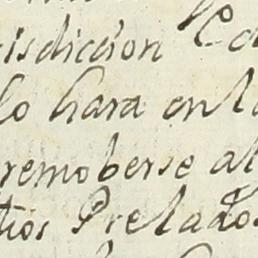 risdiccion Co
lo hara en la
remoberse al
tios Prelados